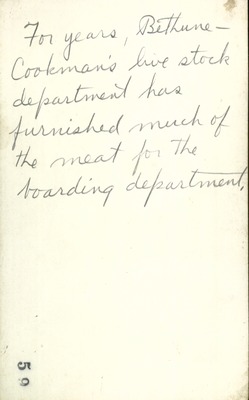 For years, Bethune-
Cookman's live stock
department has
furnished much of
the meat for the
boarding department.
59